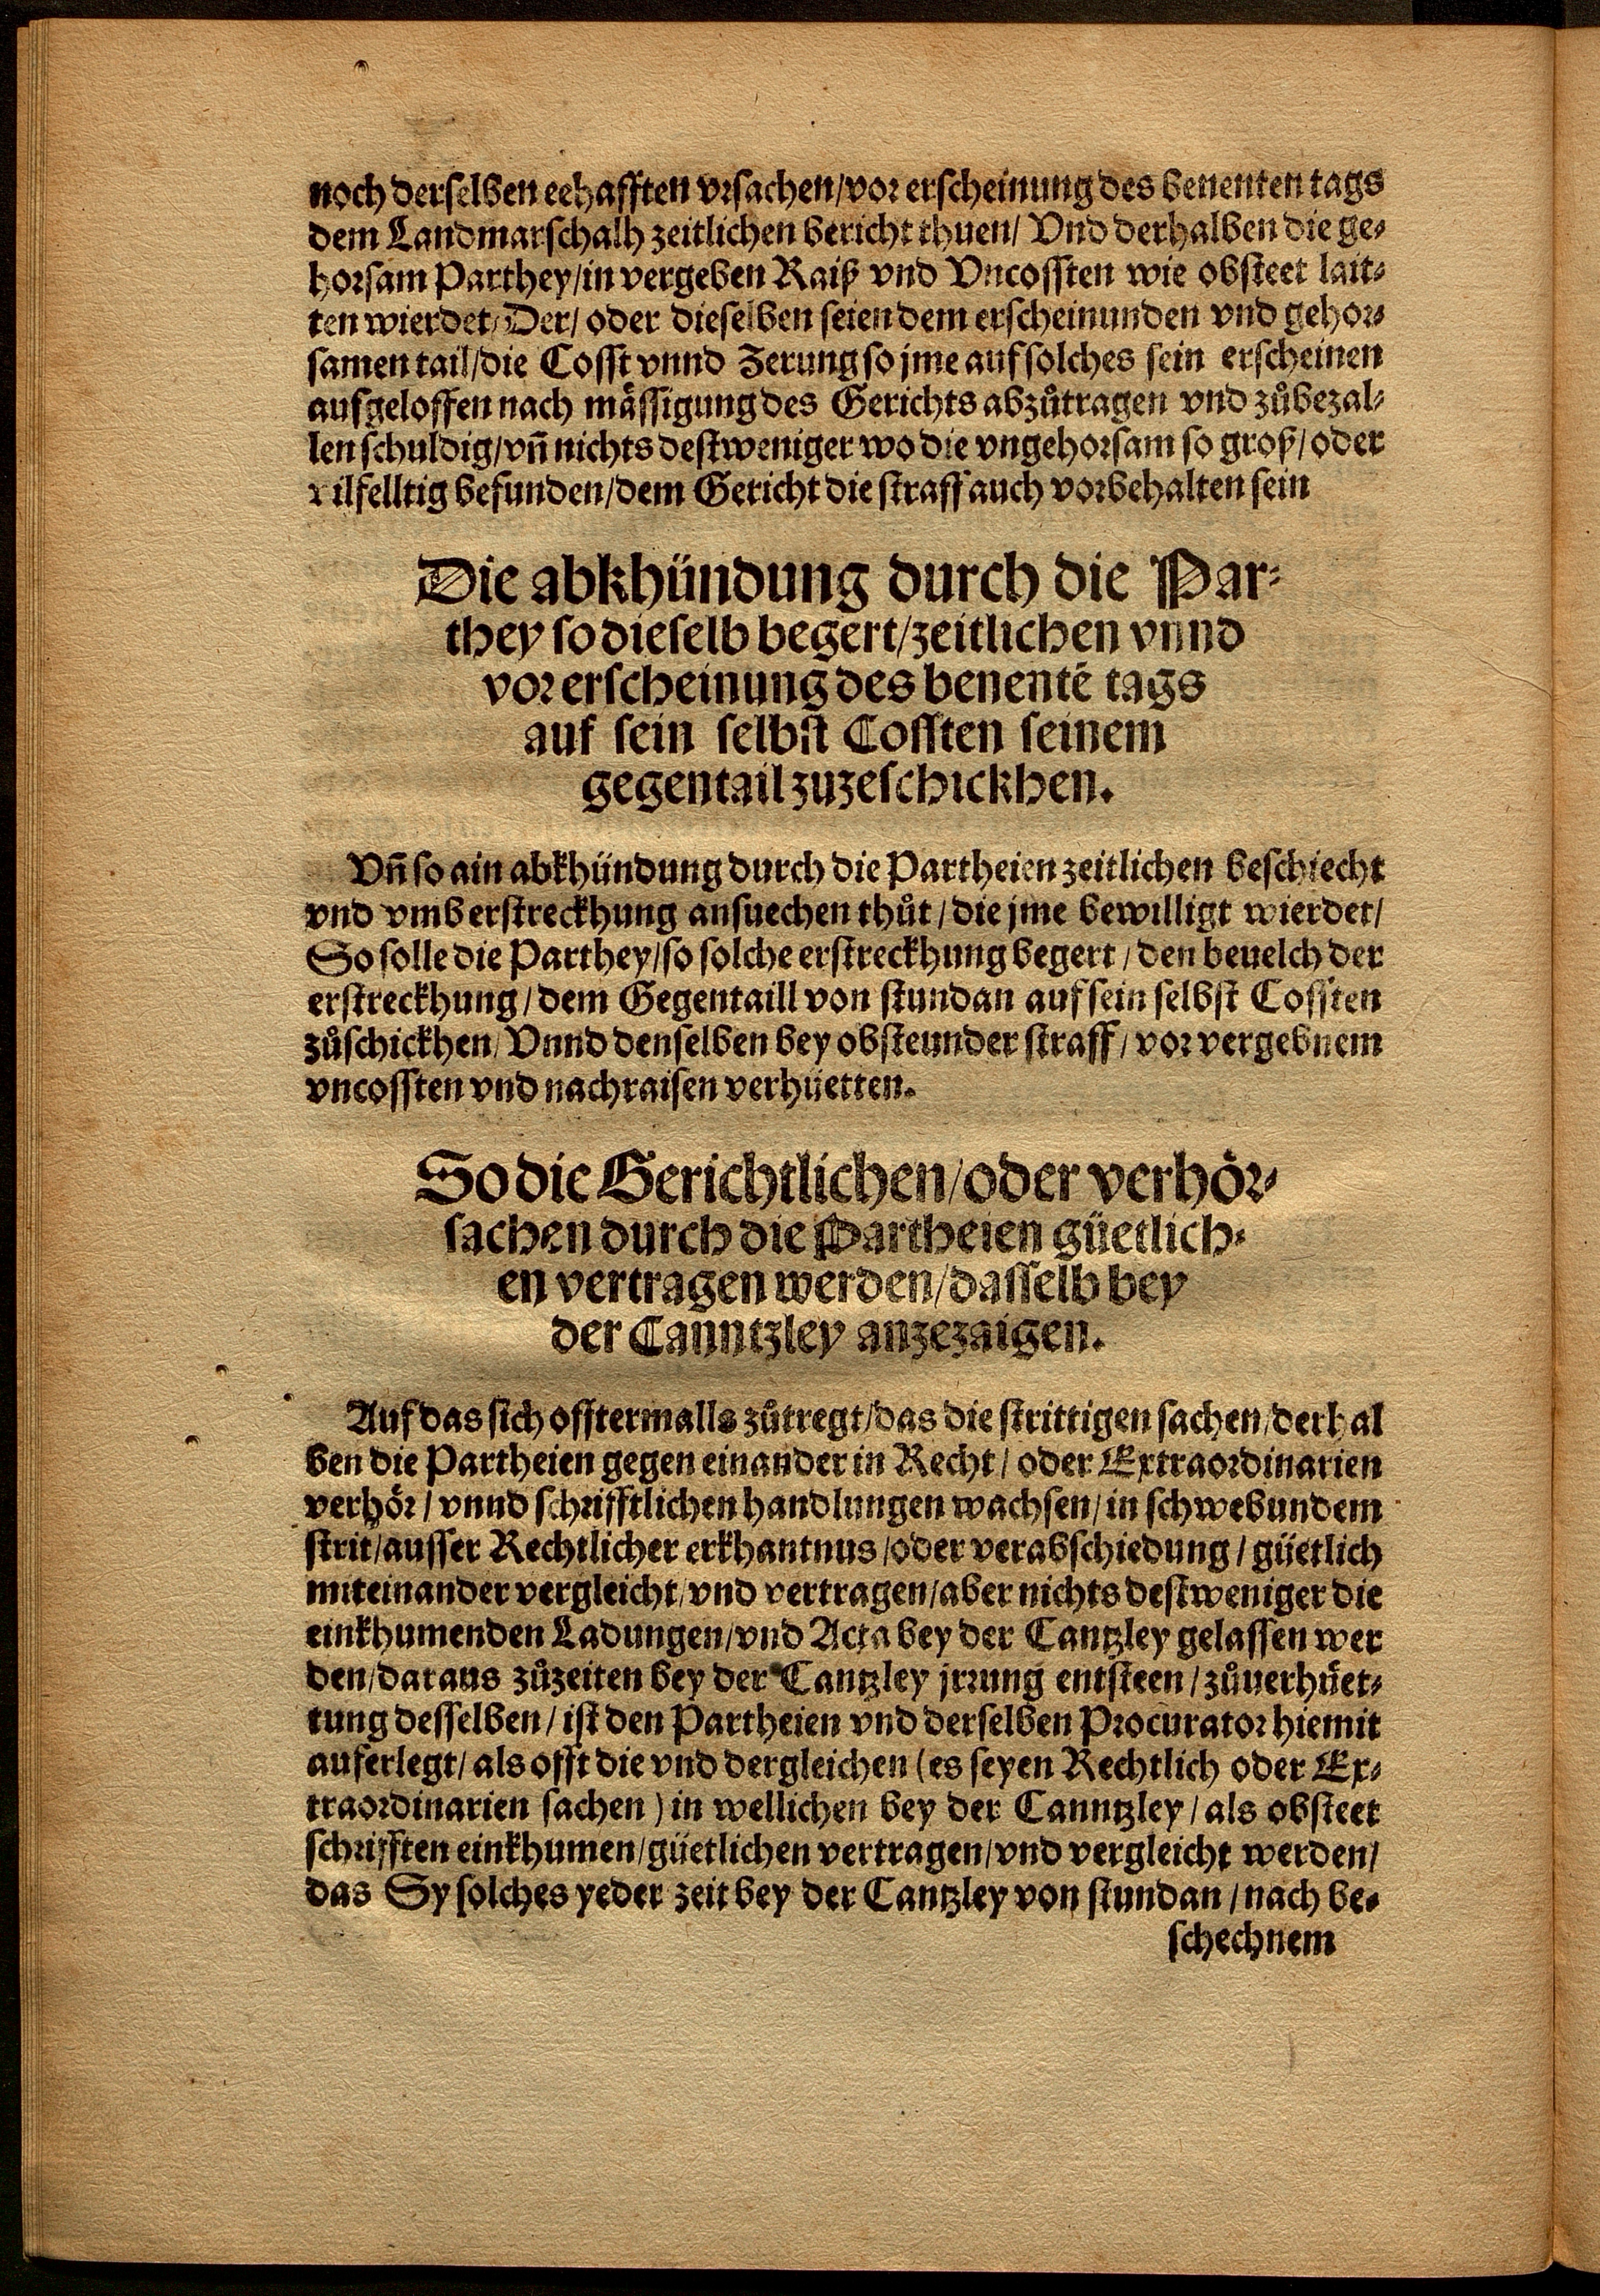 noch derselben eehafften vrsachen/vor erscheinung des benenten tags
dem Landmarschalh zeitlichen bericht thuen/ Vnd derhalben die ge-
horsam Parthey/in vergeben Raiß vnd Vncossten wie obsteet lait-
ten wierdet/Der/ oder dieselben seien dem erscheinunden vnd gehor-
samen tail/die Cosst vnnd Zerung so jme auf solches sein erscheinen
aufgeloffen nach mässigung des Gerichts abzůtragen vnd zůbezal-
len schuldig/vñ nichts destweniger wo die vngehorsam so groß/oder
vilfelltig befunden/dem Gericht die straff auch vorbehalten sein
Die abkhündung durch die Par-
they so dieselb begert/zeitlichen vnnd
vor erscheinung des benentē tags
auf sein selbst Cossten seinem
gegentail zuzeschickhen.
Vñ so ain abkhündung durch die Partheien zeitlichen beschiecht
vnd vmb erstreckhung ansuechen thůt/die jme bewilligt wierdet/
So solle die Parthey/so solche erstreckhung begert/den beuelch der
erstreckhung/dem Gegentaill von stundan auf sein selbst Cossten
zůschickhen/Vnnd denselben bey obsteunder straff/vor vergebnem
vncossten vnd nachraisen verhüetten.
So die Gerichtlichen/oder verhör-
sachen durch die Partheien güetlich-
en vertragen werden/dasselb bey
der Canntzley anzezaigen.
Auf das sich offtermalls zůtregt/das die strittigen sachen/derhal
ben die Partheien gegen einander in Recht/oder Extraordinarien
verhör/vnnd schrifftlichen handlungen wachsen/in schwebundem
strit/ausser Rechtlicher erkhantnus/oder verabschiedung/güetlich
miteinander vergleicht/vnd vertragen/aber nichts destweniger die
einkhumenden Ladungen/vnd Acta bey der Cantzley gelassen wer
den/daraus zůzeiten bey der Cantzley jrrung entsteen/zůuerhüet-
tung desselben/ist den Partheien vnd derselben Procurator hiemit
auferlegt/als offt die vnd dergleichen (es seyen Rechtlich oder Ex-
traordinarien sachen) in wellichen bey der Canntzley/als obsteet
schrifften einkhumen/güetlichen vertragen/vnd vergleicht werden/
das Sy solches yeder zeit bey der Cantzley von stundan/nach be-
schechnem